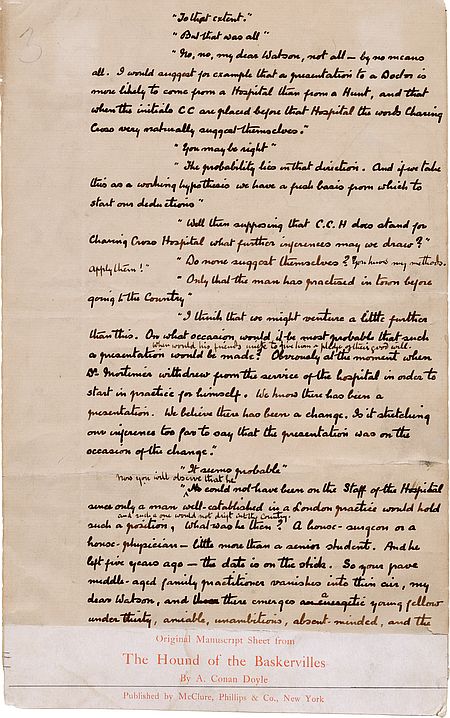 3
"To that extent."
"But that was all"
"No, no, my dear Watson, not all — by no means
all. I would suggest for example that a presentation to a Doctor is
more likely to come from a Hospital than from a Hunt, and that
when the initials C C are placed before that Hospital the words Charing
Cross very naturally suggest themselves."
"You may be right"
"The probability lies in that direction. And if we take
this as a working hypothesis we have a fresh basis from which to
start our deductions"
"Well then supposing that C. C. H does stand for
Charing Cross Hospital what further inferences may we draw?"
"Do none suggest themselves? You know my methods.
Apply them!"
"Only that the man has practised in town before
going to the Country"
"I think that we might venture a little further
than this. On what occasion would it be most probable that such
a presentation would be made? Obviously at the moment when
when would his friends unite to give him a pledge of their good will.
Dr Mortimer withdrew from the service of the hospital in order to
start in practice for himself. We know there has been a
presentation. We believe there has been a change. Is it stretching
our inference too far to say that the presentation was on the
occasion of the change."
"It seems probable"
now you will observe that he
"No could not have been on the Staff of the Hospital
since only a man well-established in a London practice would hold
and such a one would not drift into the Country.
such a position, What was he then? A house-surgeon or a
house-physician — little more than a senior student. And he
left five years ago — the date is on the stick. So your grave
middle-aged family practitioner vanishes into thin air, my
dear Watson, and there emerges a young fellow
under thirty, amiable, unambitious, absent-minded, and the
Original Manuscript Sheet from
The Hound of the Baskervilles
By A. Conan Doyle
Published by McClure, Phillips & Co., New York